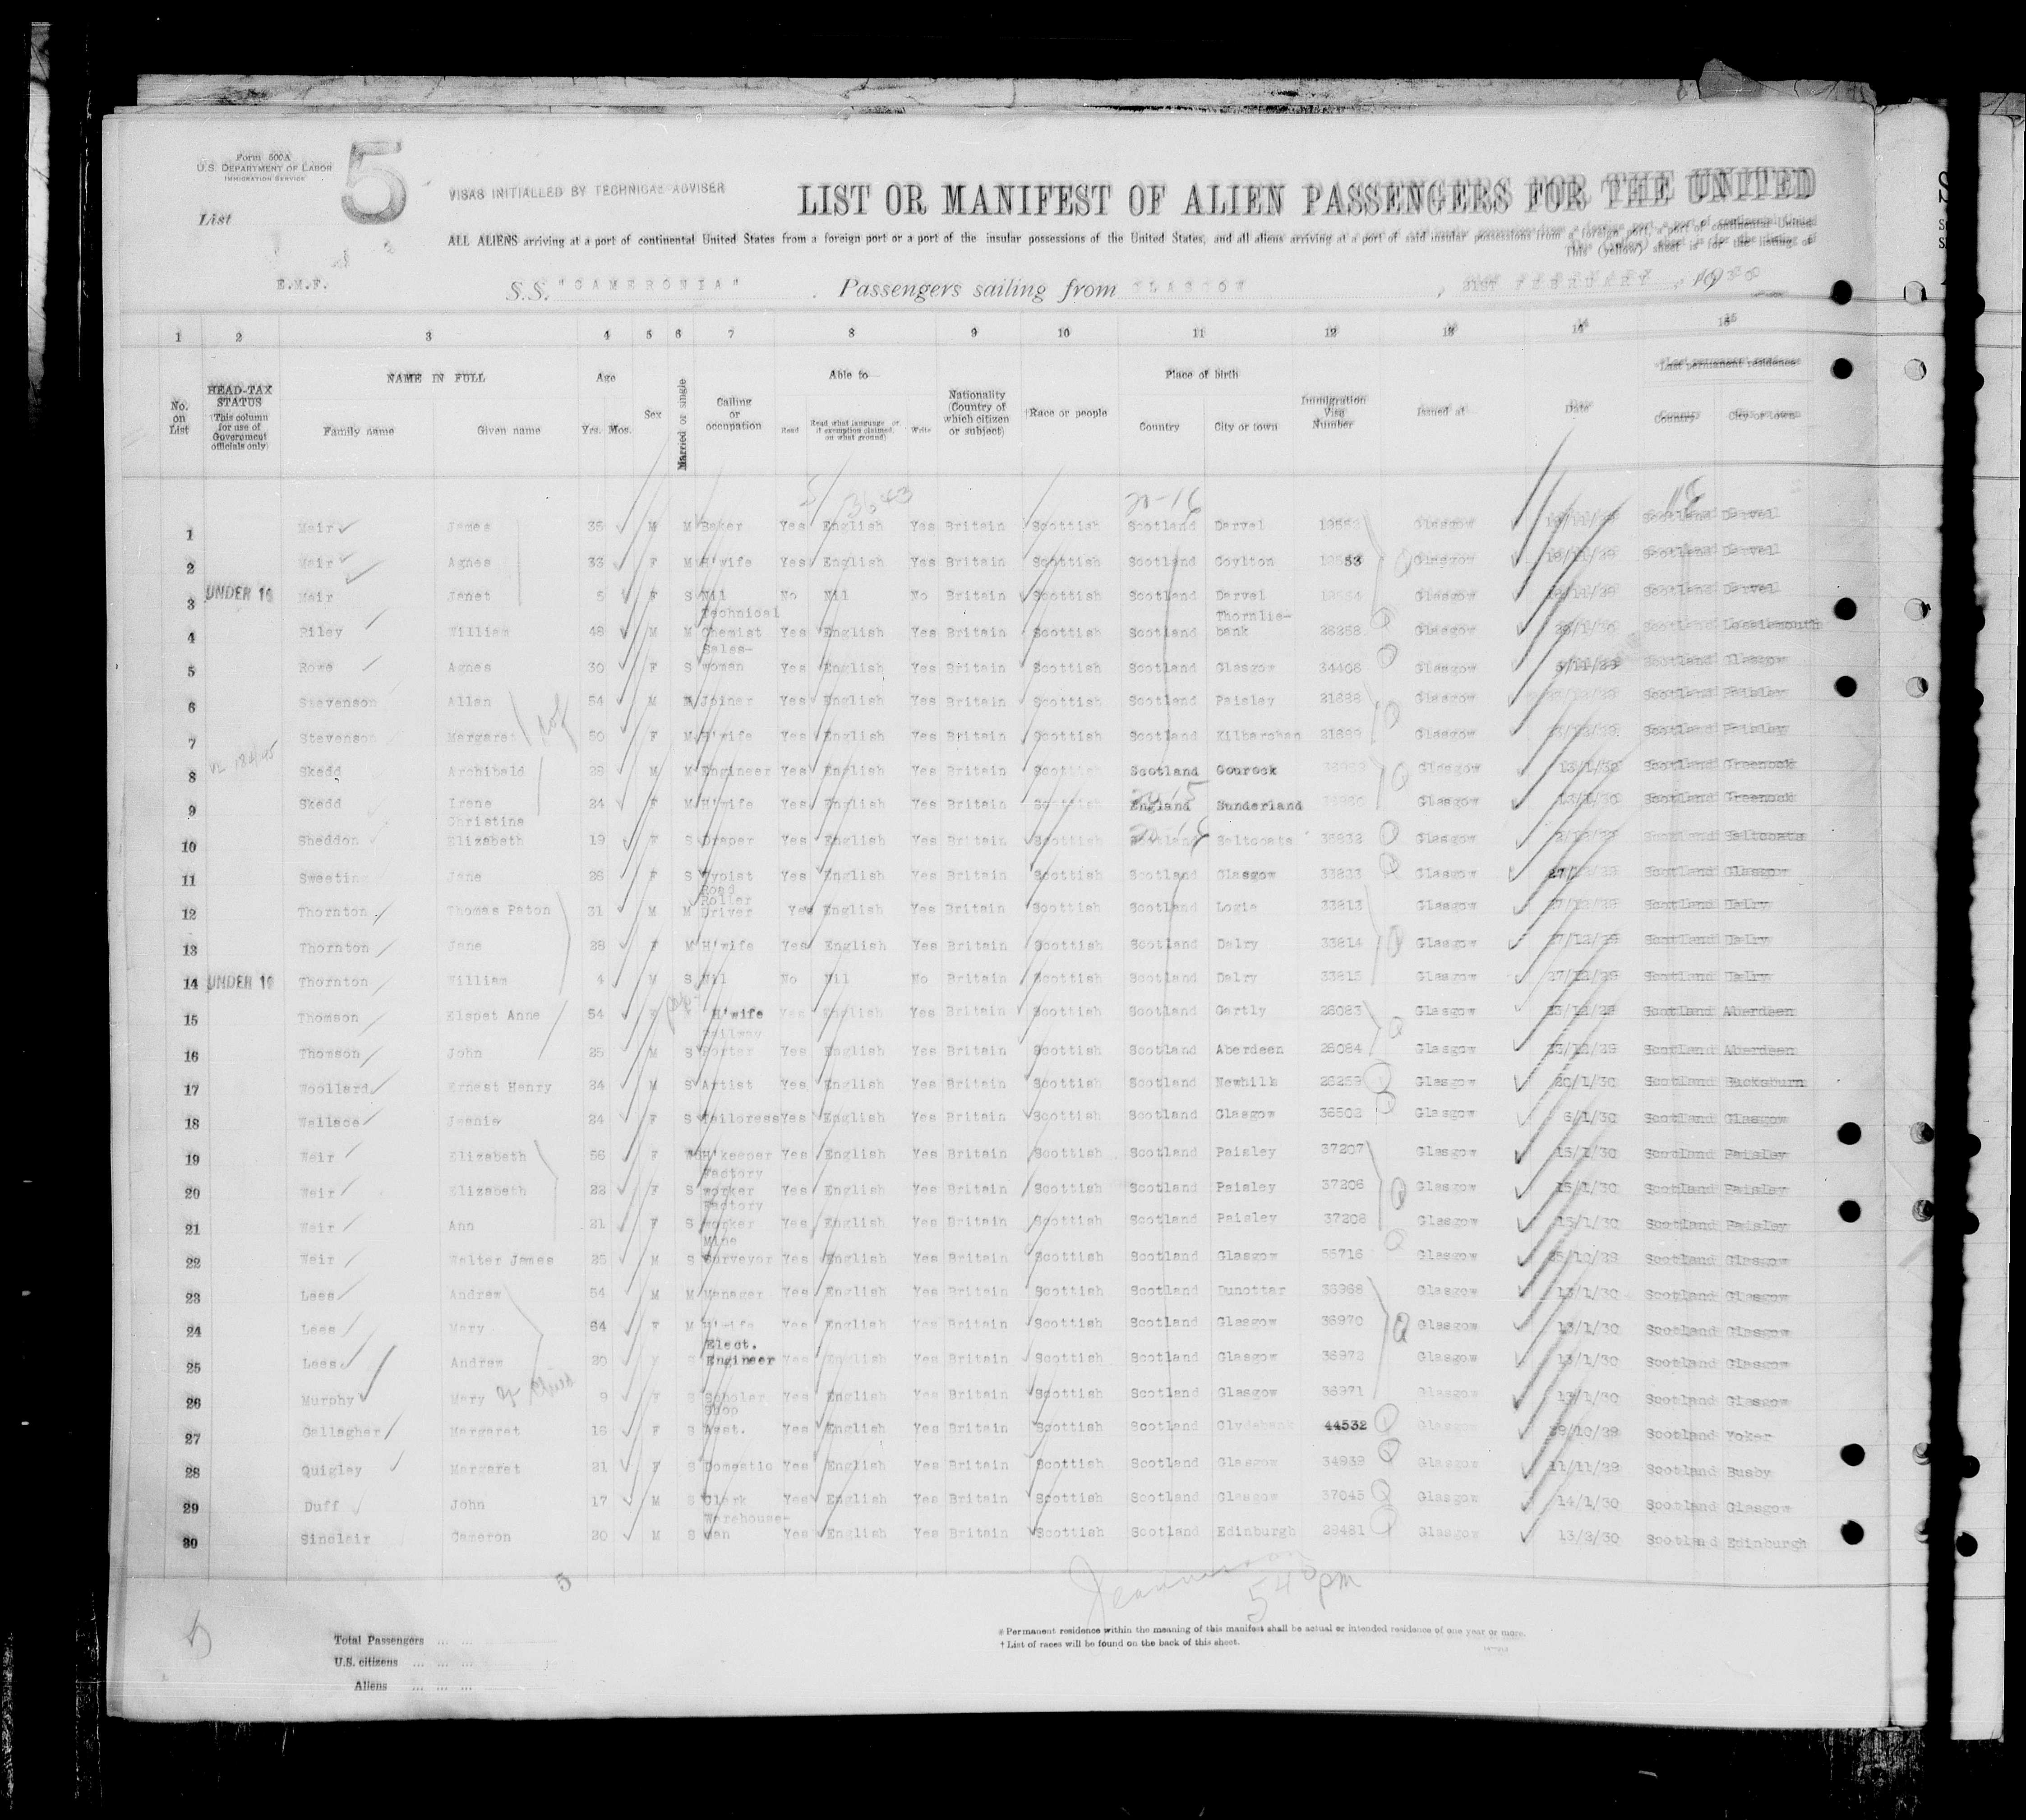 Form 500A
U.S. DEPARTMENT OF LABOR
IMMIGRATION SERVICE
5
List
VISAS INITIALLED BY TECHNICAL ADVISER
LIST OR MANIFEST OF ALIEN PASSENGERS FOR THE UNITED
ALL ALIENS arriving at a port of continental United States from a foreign port or a port of the insular possessions of the United States, and all aliens arriving at a port of said insular possessions from a foreign port, a port of continental United
This (yellow) sheet is for the listing of
E.M.F.
S.S. "CAMERONIA" Passengers sailing from GLASGOW , 21ST FEBRUARY , 1930
1 2 3 4 5 6 7 8 9 10 11 12 13 14 15
No. on List
HEAD-TAX STATUS (This column for use of Government officials only)
NAME IN FULL Family name Given name
Age Yrs. Mos.
Sex
Married or single
Calling or occupation
Able to Read Read what language or if exemption claimed, on what ground) Write
Nationality (Country of which citizen or subject)
†Race or people
Place of birth Country City or town
Immigration Visa Number
Issued at
Date
*Last permanent residence Country City or town
5/ 3643 20-16
1 Mair James 35 M M Baker Yes English Yes Britain Scottish Scotland Darvel Glasgow Scotland Darvel
2 Mair Agnes 33 F M H'wife Yes English Yes Britain Scottish Scotland Coylton Glasgow 19/11/29 Scotland Darvel
3 UNDER 16 Mair Janet 5 F S Nil No Nil No Britain Scottish Scotland Darvel Glasgow Scotland Darvel
4 Riley William 48 M M Technical Chemist Yes English Yes Britain Scottish Scotland Thornlie-bank 28258 Glasgow Scotland Lossiemouth
5 Rowe Agnes 30 F S Sales-woman Yes English Yes Britain Scottish Scotland Glasgow 34408 Glasgow Scotland Glasgow
6 Stevenson Allan 54 M M Joiner Yes English Yes Britain Scottish Scotland Paisley 21888 Glasgow Scotland Paisley
7 Stevenson Margaret 50 F M H'wife Yes English Yes Britain Scottish Scotland Kilbarchan 21889 Glasgow Scotland Paisley
8 Skedd Archibald 28 M M Engineer Yes English Yes Britain Scottish Scotland Gourock Glasgow 13/1/30 Scotland Greenock
9 Skedd Irene 24 F M H'wife Yes English Yes Britain Scottish England Sunderland Glasgow 13/1/30 Scotland Greenock
10 Sheddon Christina Elizabeth 19 F S Draper Yes English Yes Britain Scottish Scotland Saltcoats Glasgow Scotland Saltcoats
11 Sweeting Jane 28 F S Typist Yes English Yes Britain Scottish Scotland Glasgow 33823 Glasgow 27/12/29 Scotland Glasgow
12 Thornton Thomas Paton 31 M M Road Roller Driver Yes English Yes Britain Scottish Scotland Logie 33813 Glasgow 27/12/29 Scotland Dalry
13 Thornton Jane 28 F M H'wife Yes English Yes Britain Scottish Scotland Dalry 33814 Glasgow 27/12/29 Scotland Dalry
14 UNDER 16 Thornton William 4 M S Nil No Nil No Britain Scottish Scotland Dalry 33815 Glasgow 27/12/29 Scotland Dalry
15 Thomson Elspet Anne 54 F H'wife Yes English Yes Britain Scottish Scotland Gartly 28083 Glasgow 23/12/29 Scotland Aberdeen
16 Thomson John 25 M S Railway Porter Yes English Yes Britain Scottish Scotland Aberdeen 28084 Glasgow 23/12/29 Scotland Aberdeen
17 Woollard Ernest Henry 24 M S Artist Yes English Yes Britain Scottish Scotland Newhills 28259 Glasgow 20/1/30 Scotland Bucksburn
18 Wallace Jeanie 24 F S Tailoress Yes English Yes Britain Scottish Scotland Glasgow 36502 Glasgow 6/1/30 Scotland Glasgow
19 Weir Elizabeth 56 F H'keeper Yes English Yes Britain Scottish Scotland Paisley 37207 Glasgow 15/1/30 Scotland Paisley
20 Weir Elizabeth 22 F S Factory worker Yes English Yes Britain Scottish Scotland Paisley 37206 Glasgow 15/1/30 Scotland Paisley
21 Weir Ann 21 F S Factory worker Yes English Yes Britain Scottish Scotland Paisley 37208 Glasgow 15/1/30 Scotland Paisley
22 Weir Walter James 25 M S Mine Surveyor Yes English Yes Britain Scottish Scotland Glasgow 55716 Glasgow 25/10/29 Scotland Glasgow
23 Lees Andrew 54 M M Manager Yes English Yes Britain Scottish Scotland Dunottar 36968 Glasgow 13/1/30 Scotland Glasgow
24 Lees Mary 64 F M H'wife Yes English Yes Britain Scottish Scotland Glasgow 36970 Glasgow 13/1/30 Scotland Glasgow
25 Lees Andrew 20 S Elect. Engineer Yes English Yes Britain Scottish Scotland Glasgow 36972 Glasgow 13/1/30 Scotland Glasgow
26 Murphy Mary 9 F S Scholar Yes English Yes Britain Scottish Scotland Glasgow 36971 Glasgow 13/1/30 Scotland Glasgow
27 Gallagher Margaret 16 F S Shop Asst. Yes English Yes Britain Scottish Scotland Clydebank 44532 Glasgow 29/10/29 Scotland Yoker
28 Quigley Margaret 21 F S Domestic Yes English Yes Britain Scottish Scotland Glasgow 34939 Glasgow 11/11/29 Scotland Busby
29 Duff John 17 M S Clerk Yes English Yes Britain Scottish Scotland Glasgow 37045 Glasgow 14/1/30 Scotland Glasgow
30 Sinclair Cameron 20 M S Warehouse-man Yes English Yes Britain Scottish Scotland Edinburgh 29481 Glasgow 13/2/30 Scotland Edinburgh
5
540 pm
Total Passengers ... ...
U.S. citizens ... ... ...
Aliens ... ... ...
* Permanent residence within the meaning of this manifest shall be actual or intended residence of one year or more.
† List of races will be found on the back of this sheet.